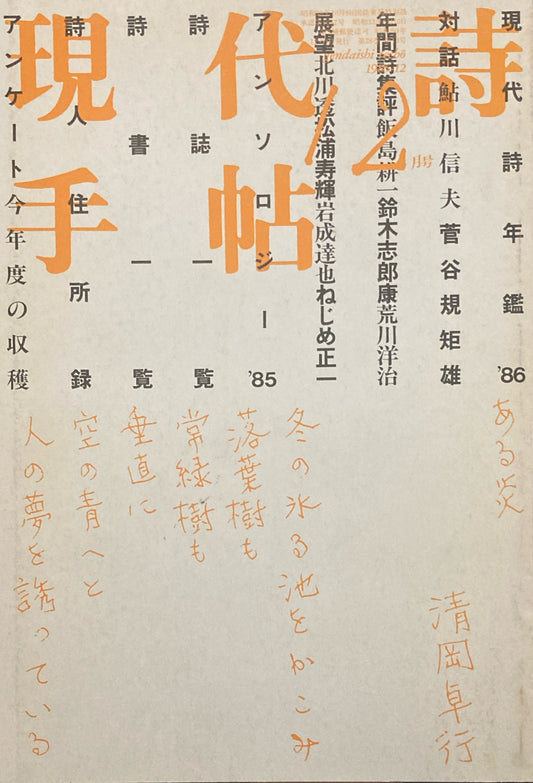 現代詩手帖
12月号
現代詩年鑑'86
対話鮎川信夫菅谷規矩雄
年間詩集評飯島耕一鈴木志郎康荒川洋治
展望北川透松浦寿輝岩成達也ねじめ正一
アンソロジー'85
詩誌一覧
詩書一覧
詩人住所録
アンケート今年度の収穫
ある炎
清岡卓行
冬の氷る池をかこみ
落葉樹も
常緑樹も
垂直に
空の青へと
人の夢を誘っている